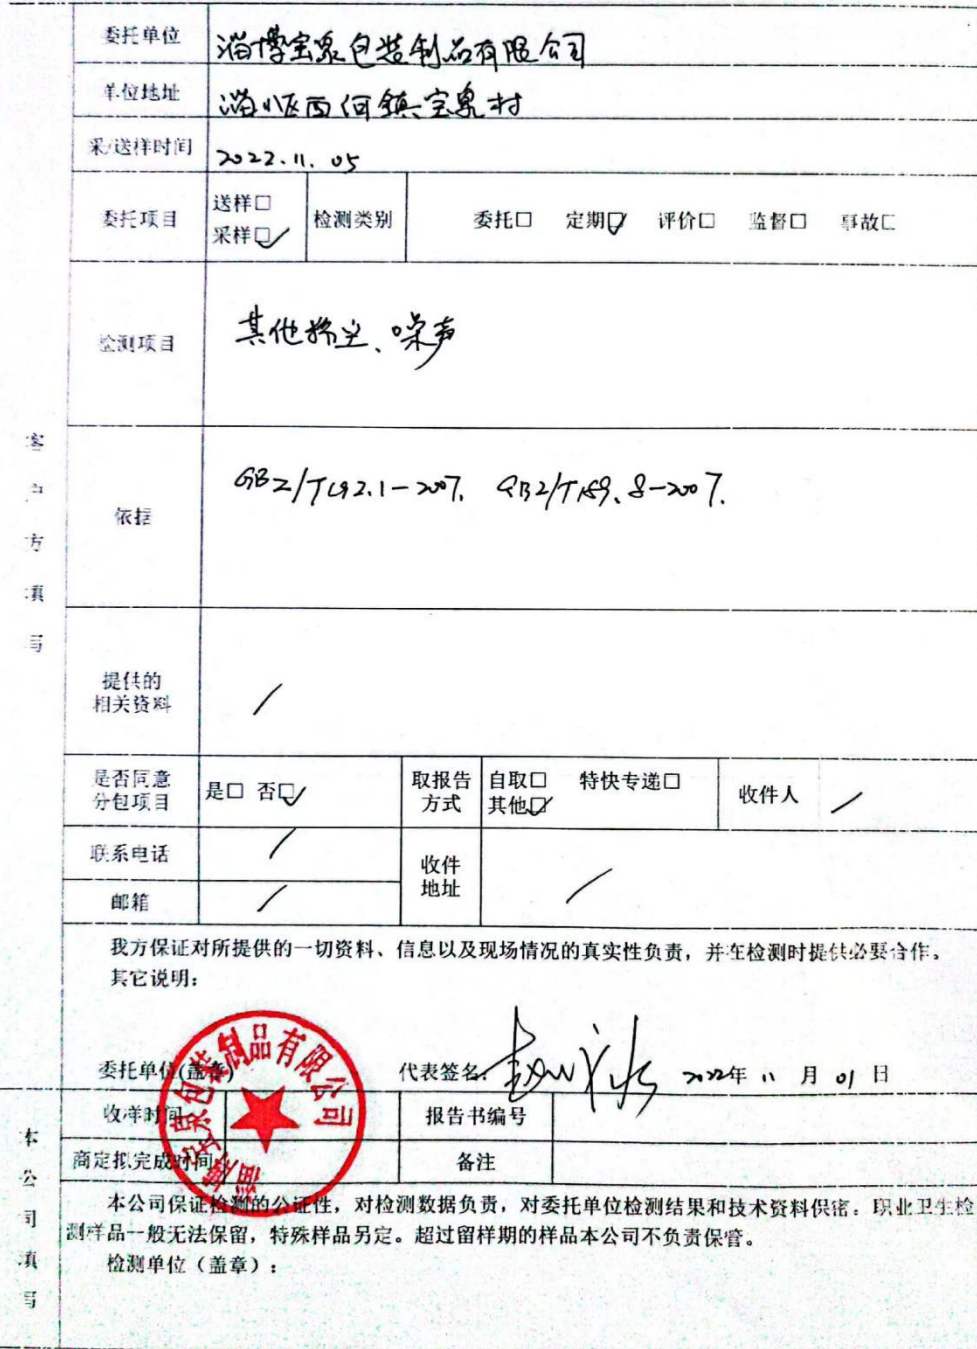 委托单位 淄博宝泉包装制品有限公司
单位地址 淄川区西河镇宝泉村
采/送样时间 2022.11.05
委托项目 送样□ 采样☑ 检测类别 委托□ 定期☑ 评价□ 监督□ 事故□
检测项目 其他粉尘、噪声
依据 GBZ/T192.1-2007. GBZ/T189.8-2007.
提供的
相关资料 /
是否同意
分包项目 是□ 否☑ 取报告
方式 自取□ 特快专递□
其他☑ 收件人 /
联系电话 /
邮箱 /
收件
地址 /
客户方填写
我方保证对所提供的一切资料、信息以及现场情况的真实性负责，并在检测时提供必要合作。
其它说明：
委托单位(盖章) 代表签名: 2022年 11 月 01 日
淄博宝泉包装制品有限公司
收样时间 报告书编号
商定拟完成时间 备注
本公司填写
本公司保证检测的公证性，对检测数据负责，对委托单位检测结果和技术资料保密。职业卫生检
测样品一般无法保留，特殊样品另定。超过留样期的样品本公司不负责保管。
检测单位（盖章）：